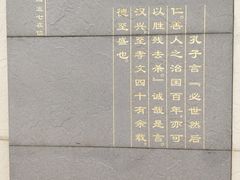 孔子言「必世然后
仁。善人之治国百年，亦可
以胜残去杀。」诚哉是言。
汉兴，至孝文四十有余载，
德至盛也